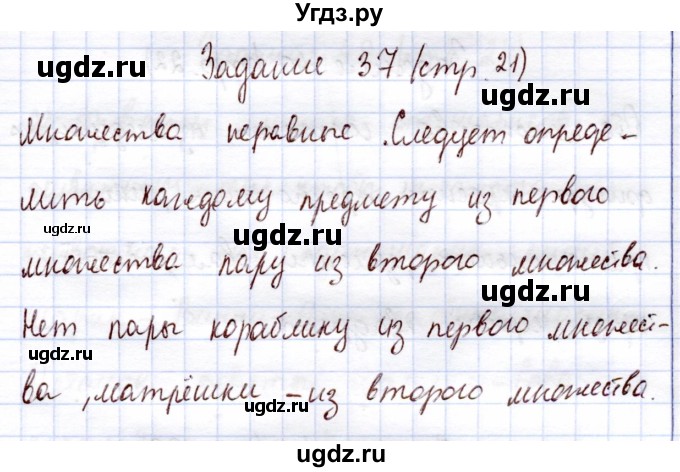 Угдз.ру
Задание 37 (стр. 21)
ugdz.ru
ugdz.ru
Множества неравные. Следует опреде-
лить каждому предмету из первого
ugdz.ru
ugdz.ru
множества пару из второго множества.
ugdz.ru
Нет пары кораблику из первого множест-
ugdz.ru
ва, матрёшки – из второго множества.
ugdz.ru
ugdz.ru